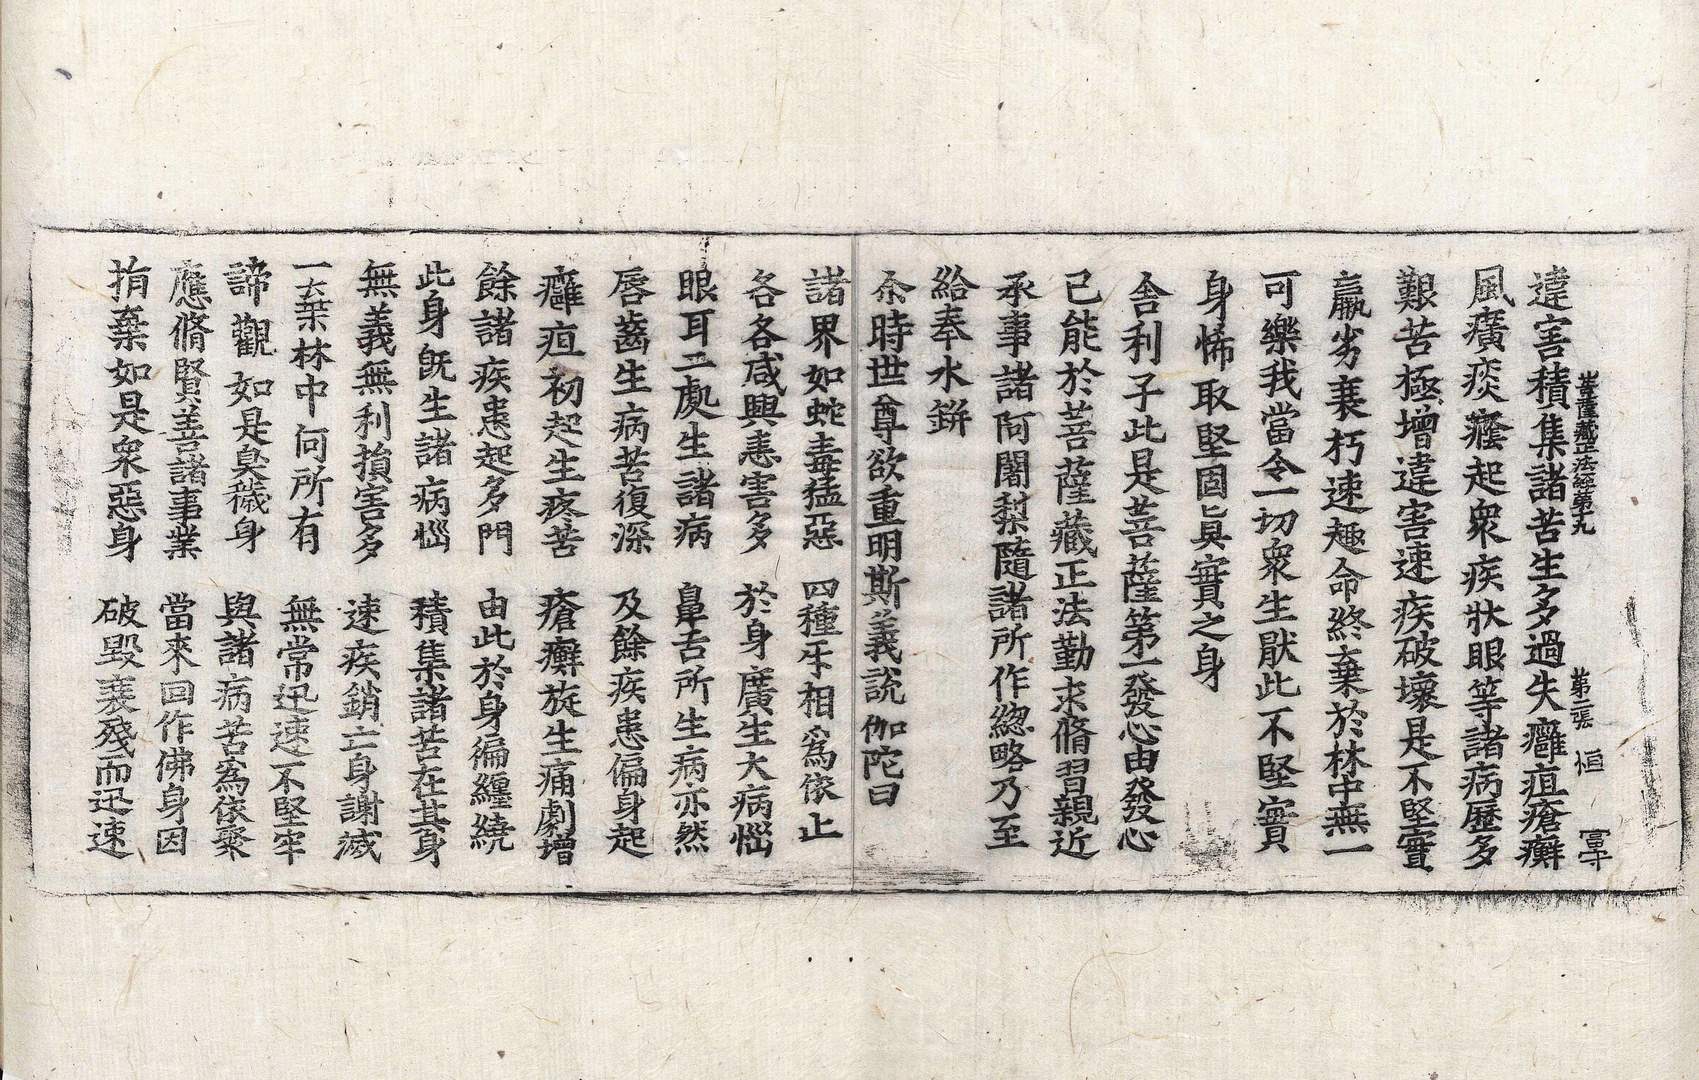 菩薩藏正法經第九 第二張 恒 富守
違害積集諸苦生多過失癰疽瘡癬
風癀痰癊起衆疾狀眼等諸病歷多
艱苦極增違害速疾破壞是不堅實
羸劣衰朽速趣命終棄於林中無一
可樂我當令一切衆生厭此不堅實
身悕取堅固真實之身
舍利子此是菩薩第一發心由發心
已能於菩薩藏正法勤求脩習親近
承事諸阿闍梨隨諸所作緫略乃至
給奉水鉼
尒時世尊欲重明斯義說伽陀曰
諸界如蛇毒猛惡 四種牙相爲依止
各各咸興恚害多 於身廣生大病惱
眼耳二處生諸病 鼻舌所生病亦然
唇齒生病苦復深 及餘疾患徧身起
癰疽初起生疼苦 瘡癬旋生痛劇增
餘諸疾患起多門 由此於身徧纏繞
此身旣生諸病惱 積集諸苦在其身
無義無利損害多 速疾銷亡身謝滅
一棄林中何所有 無常迅速不堅牢
諦觀如是臭穢身 與諸病苦爲依聚
應脩賢善諸事業 當來回作佛身因
捐棄如是衆惡身 破毀衰殘而迅速